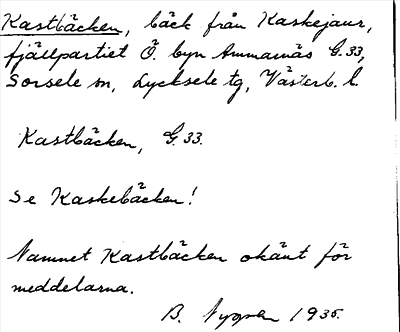 Kastbäcken, bäck från Kaskejaur,
fjällpartiet Ö. byn Ammarnäs G.33,
Sorsele sn, Lycksele tg, Västerb. l.
Kastbäcken, G.33.
Se Kaskebäcken!
Namnet Kastbäcken okänt för
meddelarna.
B. 1935.